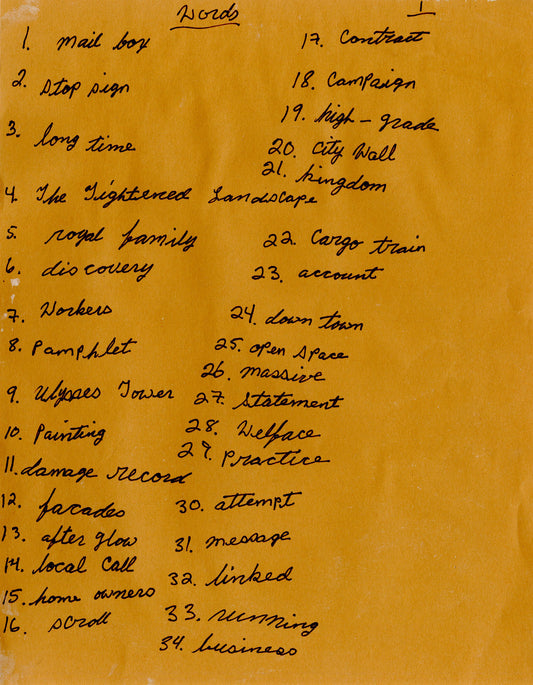 Words
1
1. Mail box
2. Stop sign
3. long time
4 The Tightened Landscape
5. royal family
6. discovery
7. Workers
8. Pamphlet
9. Ulysses Tower
10. Painting
11. damage record
12. facades
13. after glow
14. local Call
15. home owners
16. scroll
17. Contract
18. Campaign
19. high-grade
20. City Wall
21. kingdom
22. Cargo train
23. account
24. down town
25. open space
26. Massive
27. Statement
28. Welface
29. Practice
30. attempt
31. message
32. linked
33. running
34. business